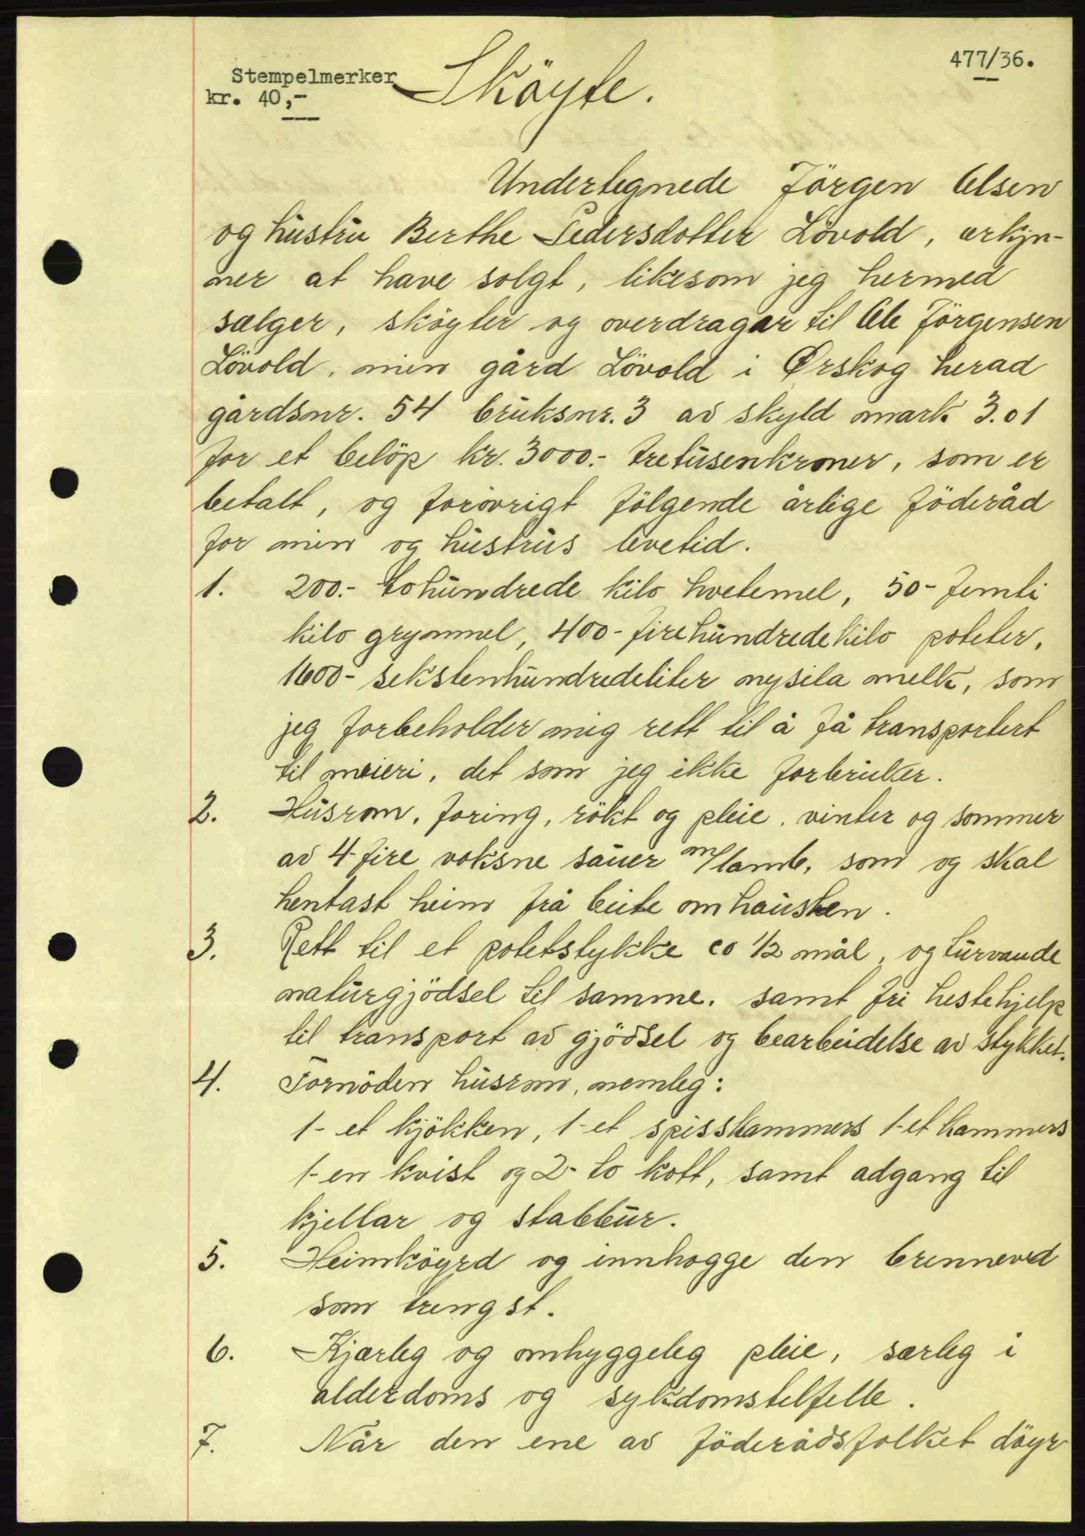 477/36.
Stempelmerker
kr. 40,-
Sköyte.
Undertegnede Jörgen Olsen
og hustru Berthe Pedersdotter Lövold, erkjn-
ner at have solgt, likesom jeg hermed
sælger, sköyter og overdragar til Ole Jörgensen
Lövold, min gård Lövold i Ørskog herad
gårdsnr. 54 bruksnr. 3 av skyld mark 3.01
for et belöp kr. 3000.- tretusenkroner, som er
betalt, og forövrigt fölgende årlige föderåd
for min og hustrus levetid.
1. 200.- tohundrede kilo hvetemel, 50- femti
kilo grynmel, 400- firehundredekilo poteter,
1600- sekstenhundredeliter nysila melk, som
jeg forbeholder mig rett til å få transportert
til meieri, det som jeg ikke forbruker.
2. Husrom, foring, rökt og pleie, vinter og sommer
av 4 fire voksne sauer m/lamb, som og skal
hentast heim frå beite om hausten.
3. Rett til et potetstykke co 1/2 mål, og turvande
naturgjödsel til samme, samt fri hestehjelp
til transport av gjödsel og bearbeidelse av stykket.
4. Fornöden husrom, nemleg:
1- et kjökken, 1-et spisskammers 1-et kammers
1-en kvist og 2- to kott, samt adgang til
kjellar og stabbur.
5. Heimköyrd og innhogge den brenneved
som trengst.
6. Kjærleg og omhyggeleg pleie, særleg i
alderdoms og sykdomstelfelle.
7. Når den ene av föderådsfolket döyr